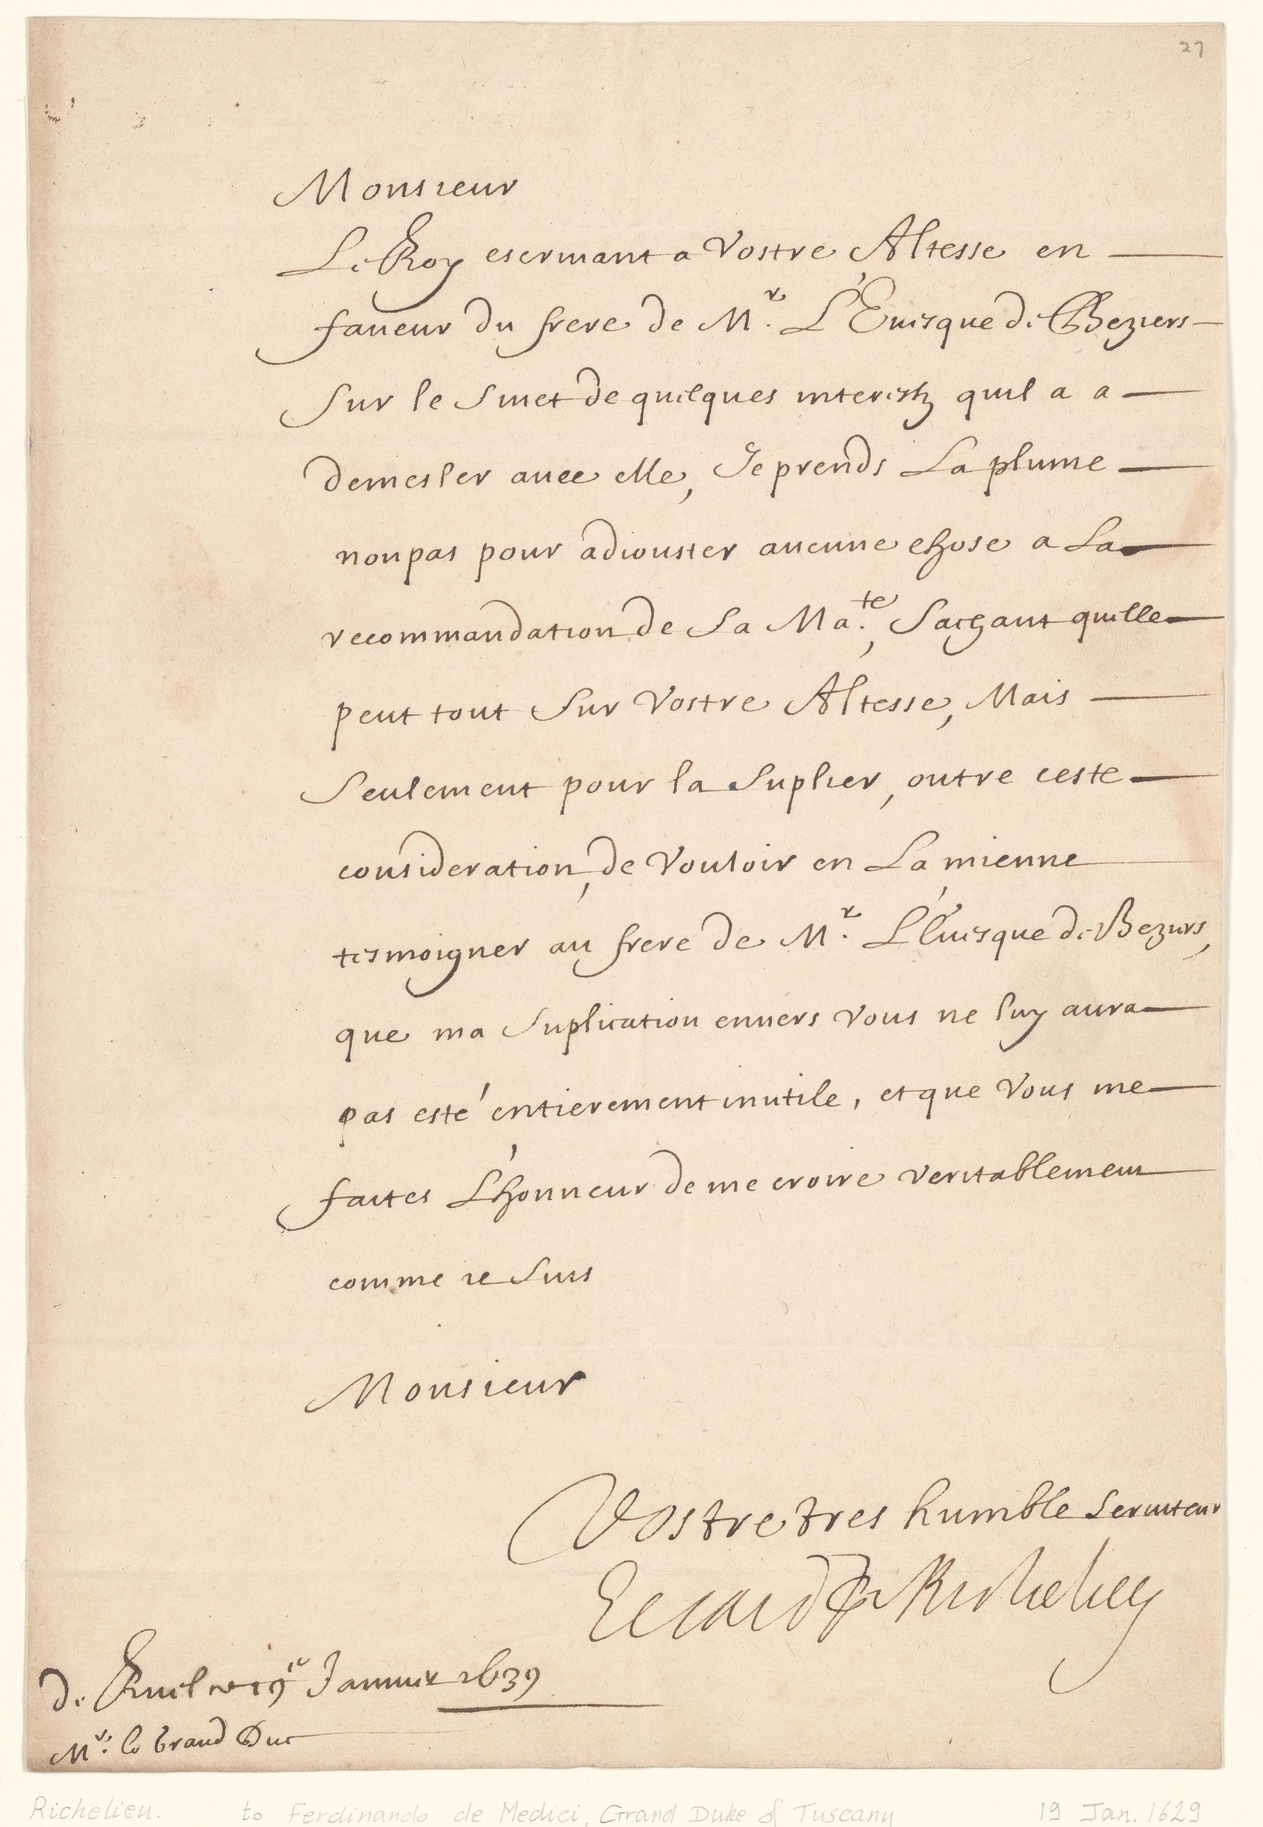 27
Monsieur
Le Roy escriuant a Vostre Altesse en
faueur du frere de Mr. L'Euesque de Beziers
Sur le Suiet de quelques interestz quil a a
demesler auec elle, Je prends La plume
non pas pour adiouster aucune chose a La
recommandation de Sa Ma.te, Sachant quelle
peut tout Sur Vostre Altesse, Mais
Seulement pour la Suplier, outre ceste
consideration, de Vouloir en La mienne
tesmoigner au frere de Mr. L'Euesque de Beziers,
que ma Suplication enuers vous ne luy aura
pas esté entierement inutile, et que Vous me
faites L'honneur de me croire veritablement
comme ie Suis
Monsieur
Vostre tres humble Seruiteur
Le Card de Richelieu
De Ruel ce 19e Januier 1639
Mr. le Grand Duc
Richelieu. to Ferdinando de Medici, Grand Duke of Tuscany 19 Jan. 1629